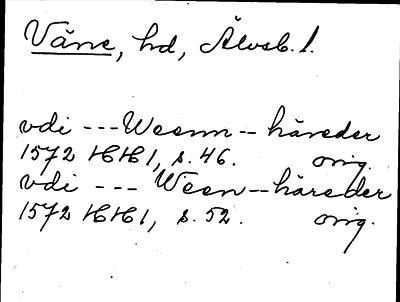 Väne, hd, Älvsb. l.
vdi --- Weenn -- häreder
1572 HH 1, s. 46. orig.
vdi --- Ween -- häreder
1572 HH 1, s. 52. orig.